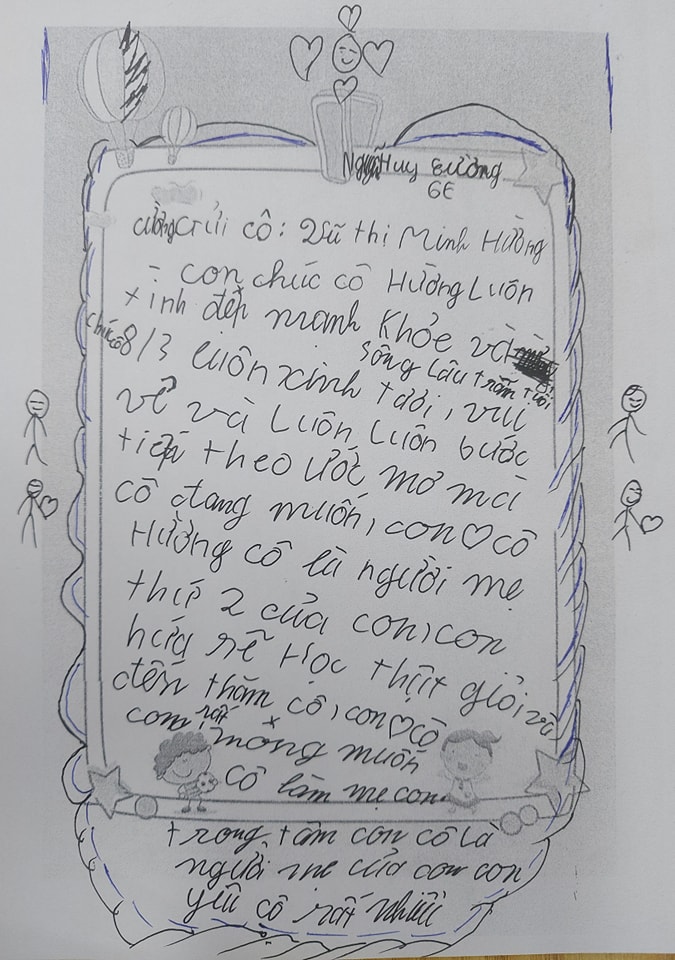 Nguyễn Huy Cường
6E
Cường Gửi cô: Vũ Thị Minh Hường
- con chúc cô Hường Luôn
xinh đẹp mạnh Khỏe và
sống Lâu trăm tuổi
chúc cô 8/3 luôn xinh tươi, vui
vẻ và Luôn Luôn bước
tiếp theo ước mơ mà
cô đang muốn, con ♡ cô
Hường cô là người mẹ
thứ 2 của con, con
hứa sẽ Học thật giỏi, và
đến thăm cô, con ♡ cô
con rất mong muốn
cô làm mẹ con
trong tâm con cô là
người mẹ của con con
yêu cô rất nhiều